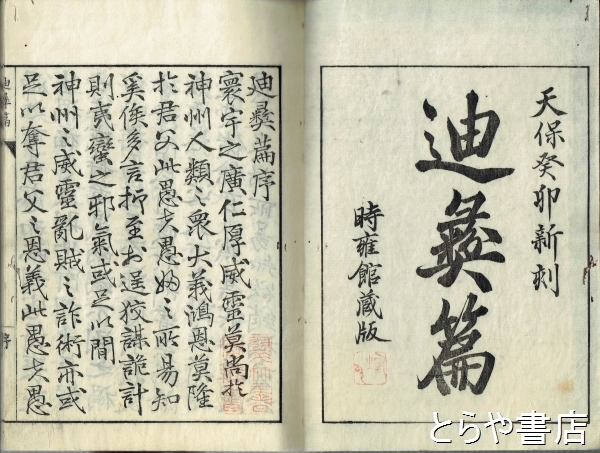 天保癸卯新刻
迪彜篇
時雍館蔵版
迪彜篇序
寰宇之廣仁厚威靈莫尚於
神州人類之衆大義鴻恩莫隆
於君父此愚夫愚婦之所易知
奚俟多言抑至於逞狡謀詭計
則夷蠻之邪氣或足以間
神州之威靈亂賊之詐術亦或
足以奪君父之恩義此愚夫愚
迪彜篇
序
とらや書店